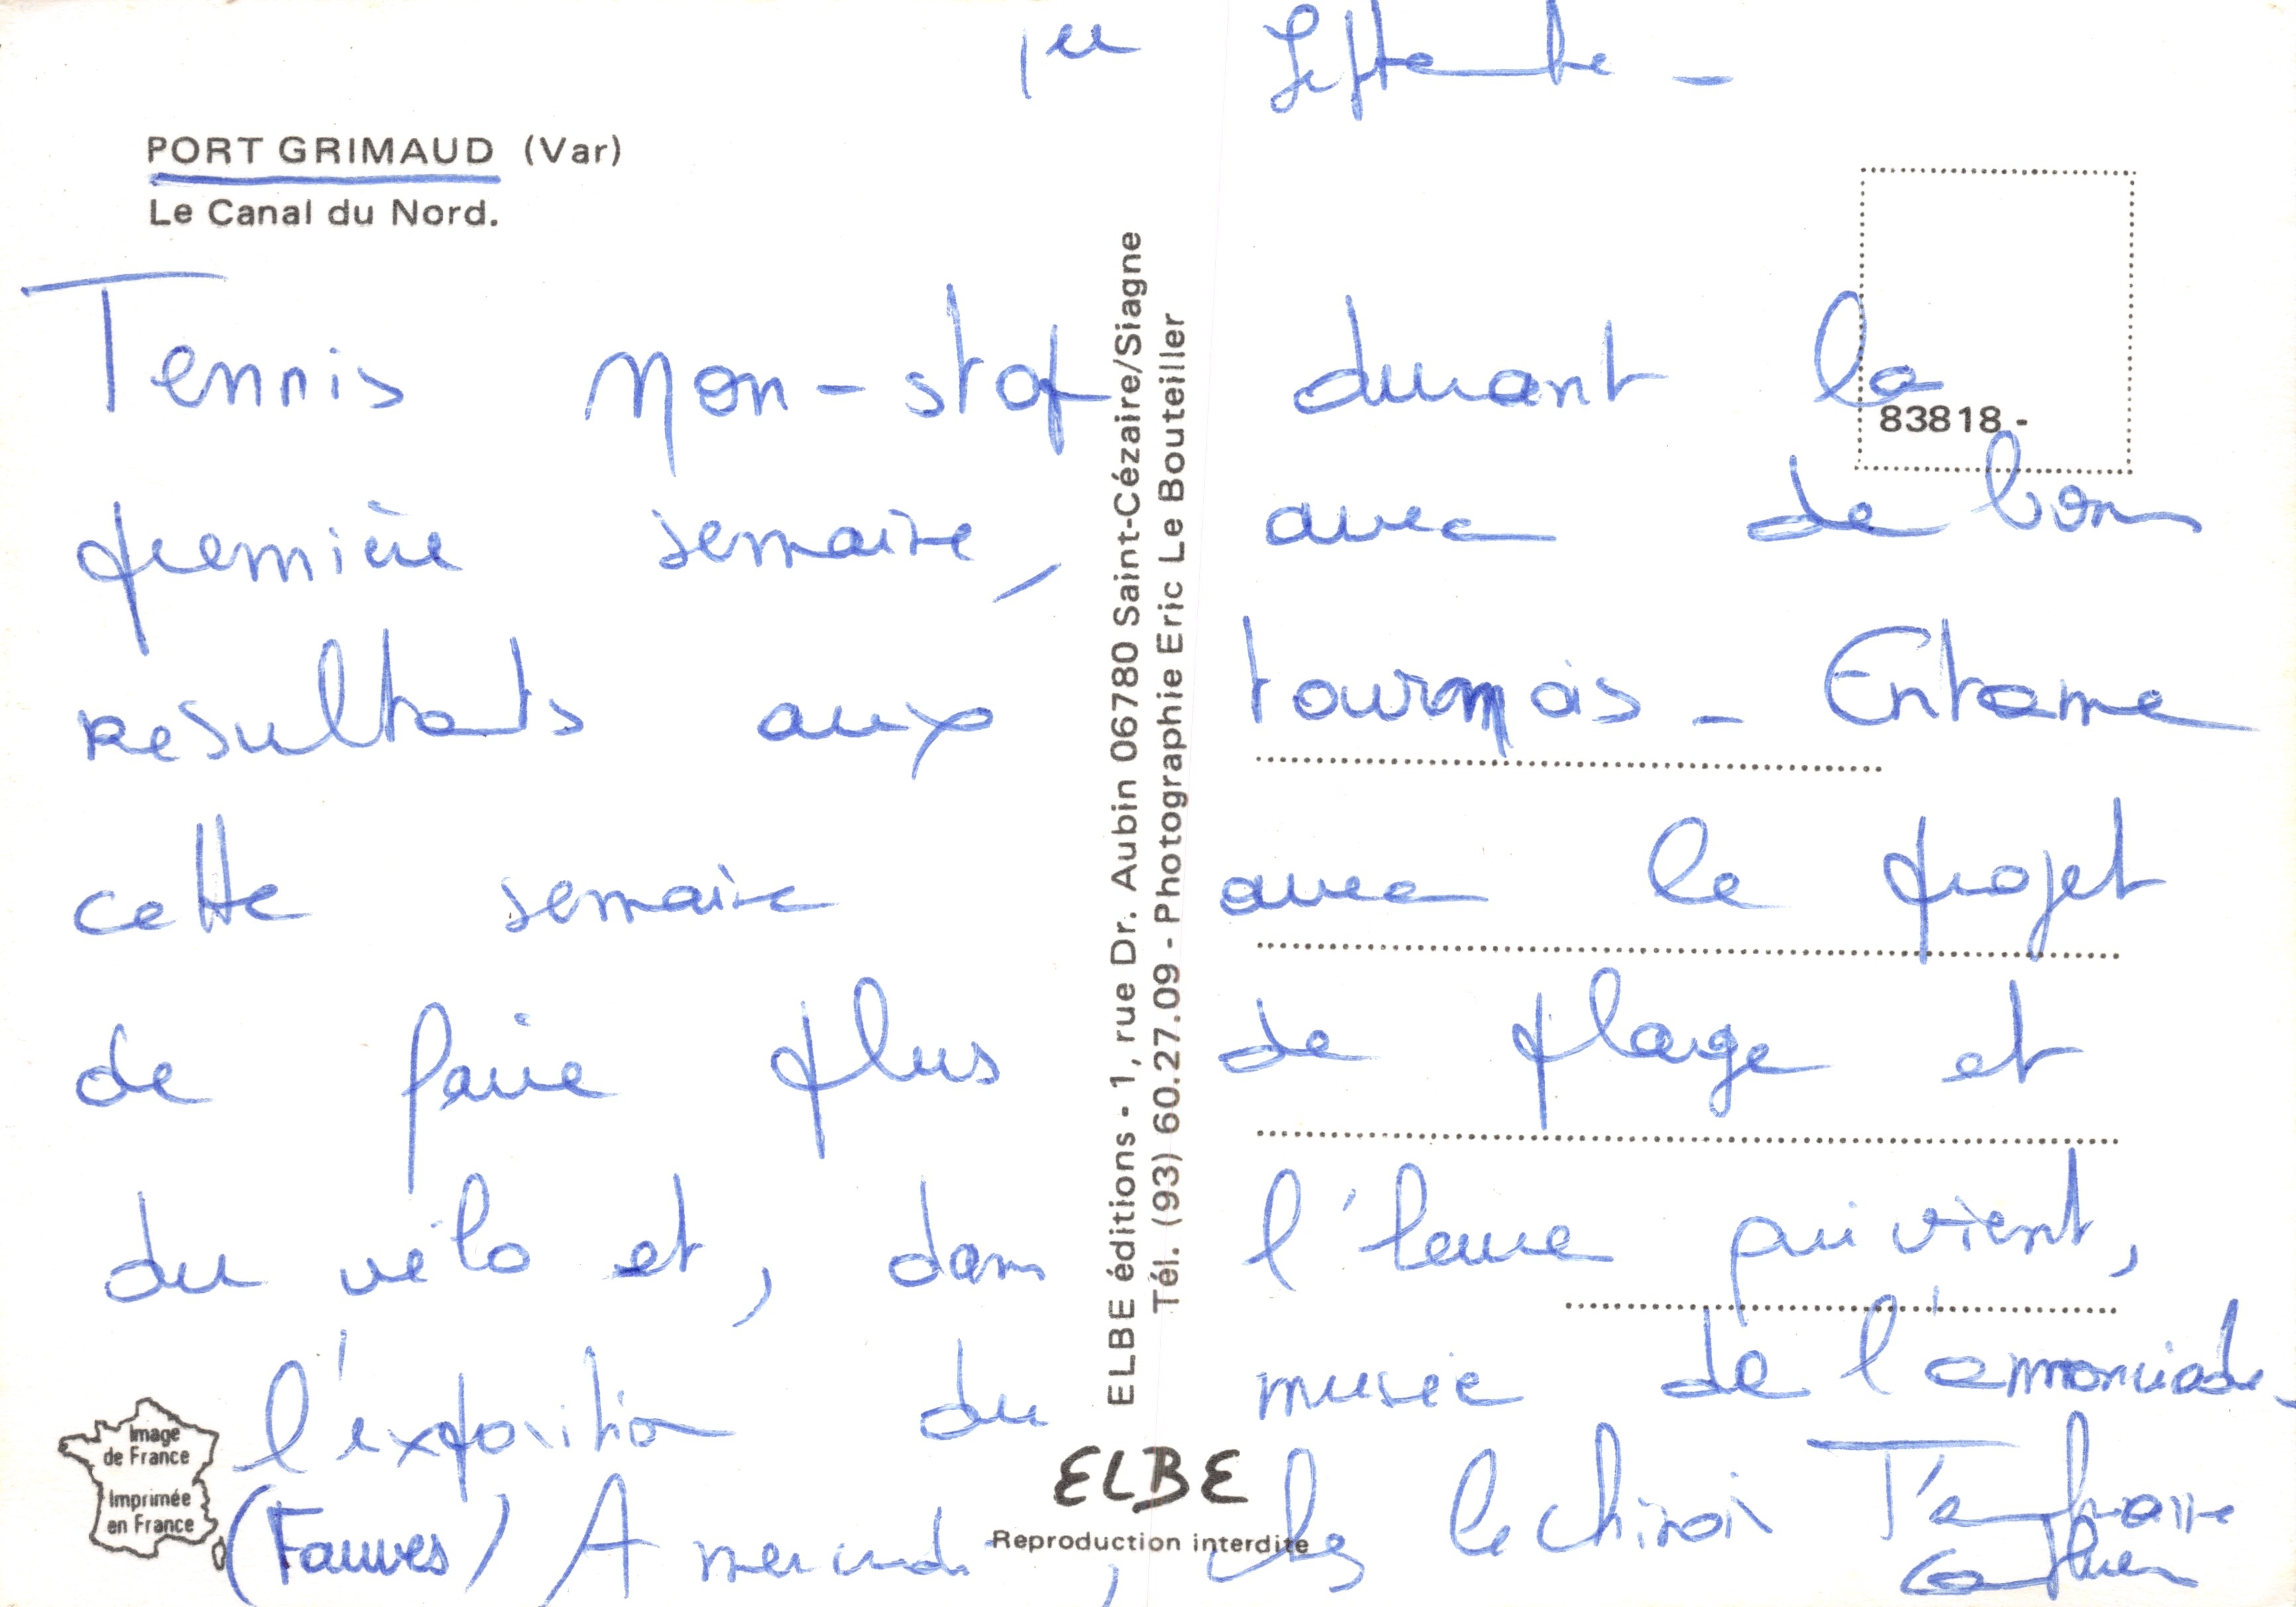 1er Septembre -
PORT GRIMAUD (Var)
Le Canal du Nord.
Tennis Non-stop durant la
83818 -
première semaine, avec de bons
résultats aux tournois - Entame
cette semaine avec le projet
de faire plus de plage et
du vélo et, dans l'heure qui vient,
l'exposition du musée de l'annonciade
(Fauves) A mercredi, chez le chinois T'embrasse
ELBE éditions - 1, rue Dr. Aubin 06780 Saint-Cézaire/Siagne
Tél. (93) 60.27.09 - Photographie Eric Le Bouteiller
Image
de France
Imprimée
en France
ELBE
Reproduction interdite